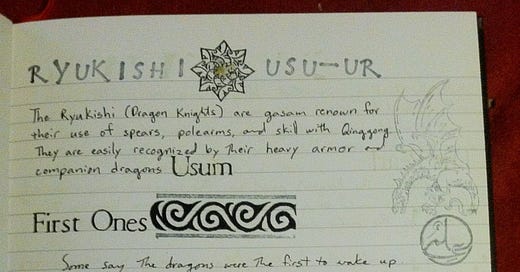 RYUKISHI USU-UR
The Ryukishi (Dragon Knights) are gasam renown for
their use of spears, polearms, and skill with Qinggong.
They are easily recognized by their heavy armor and
companion dragons Usum
First Ones
Some say the dragons were the first to wake up